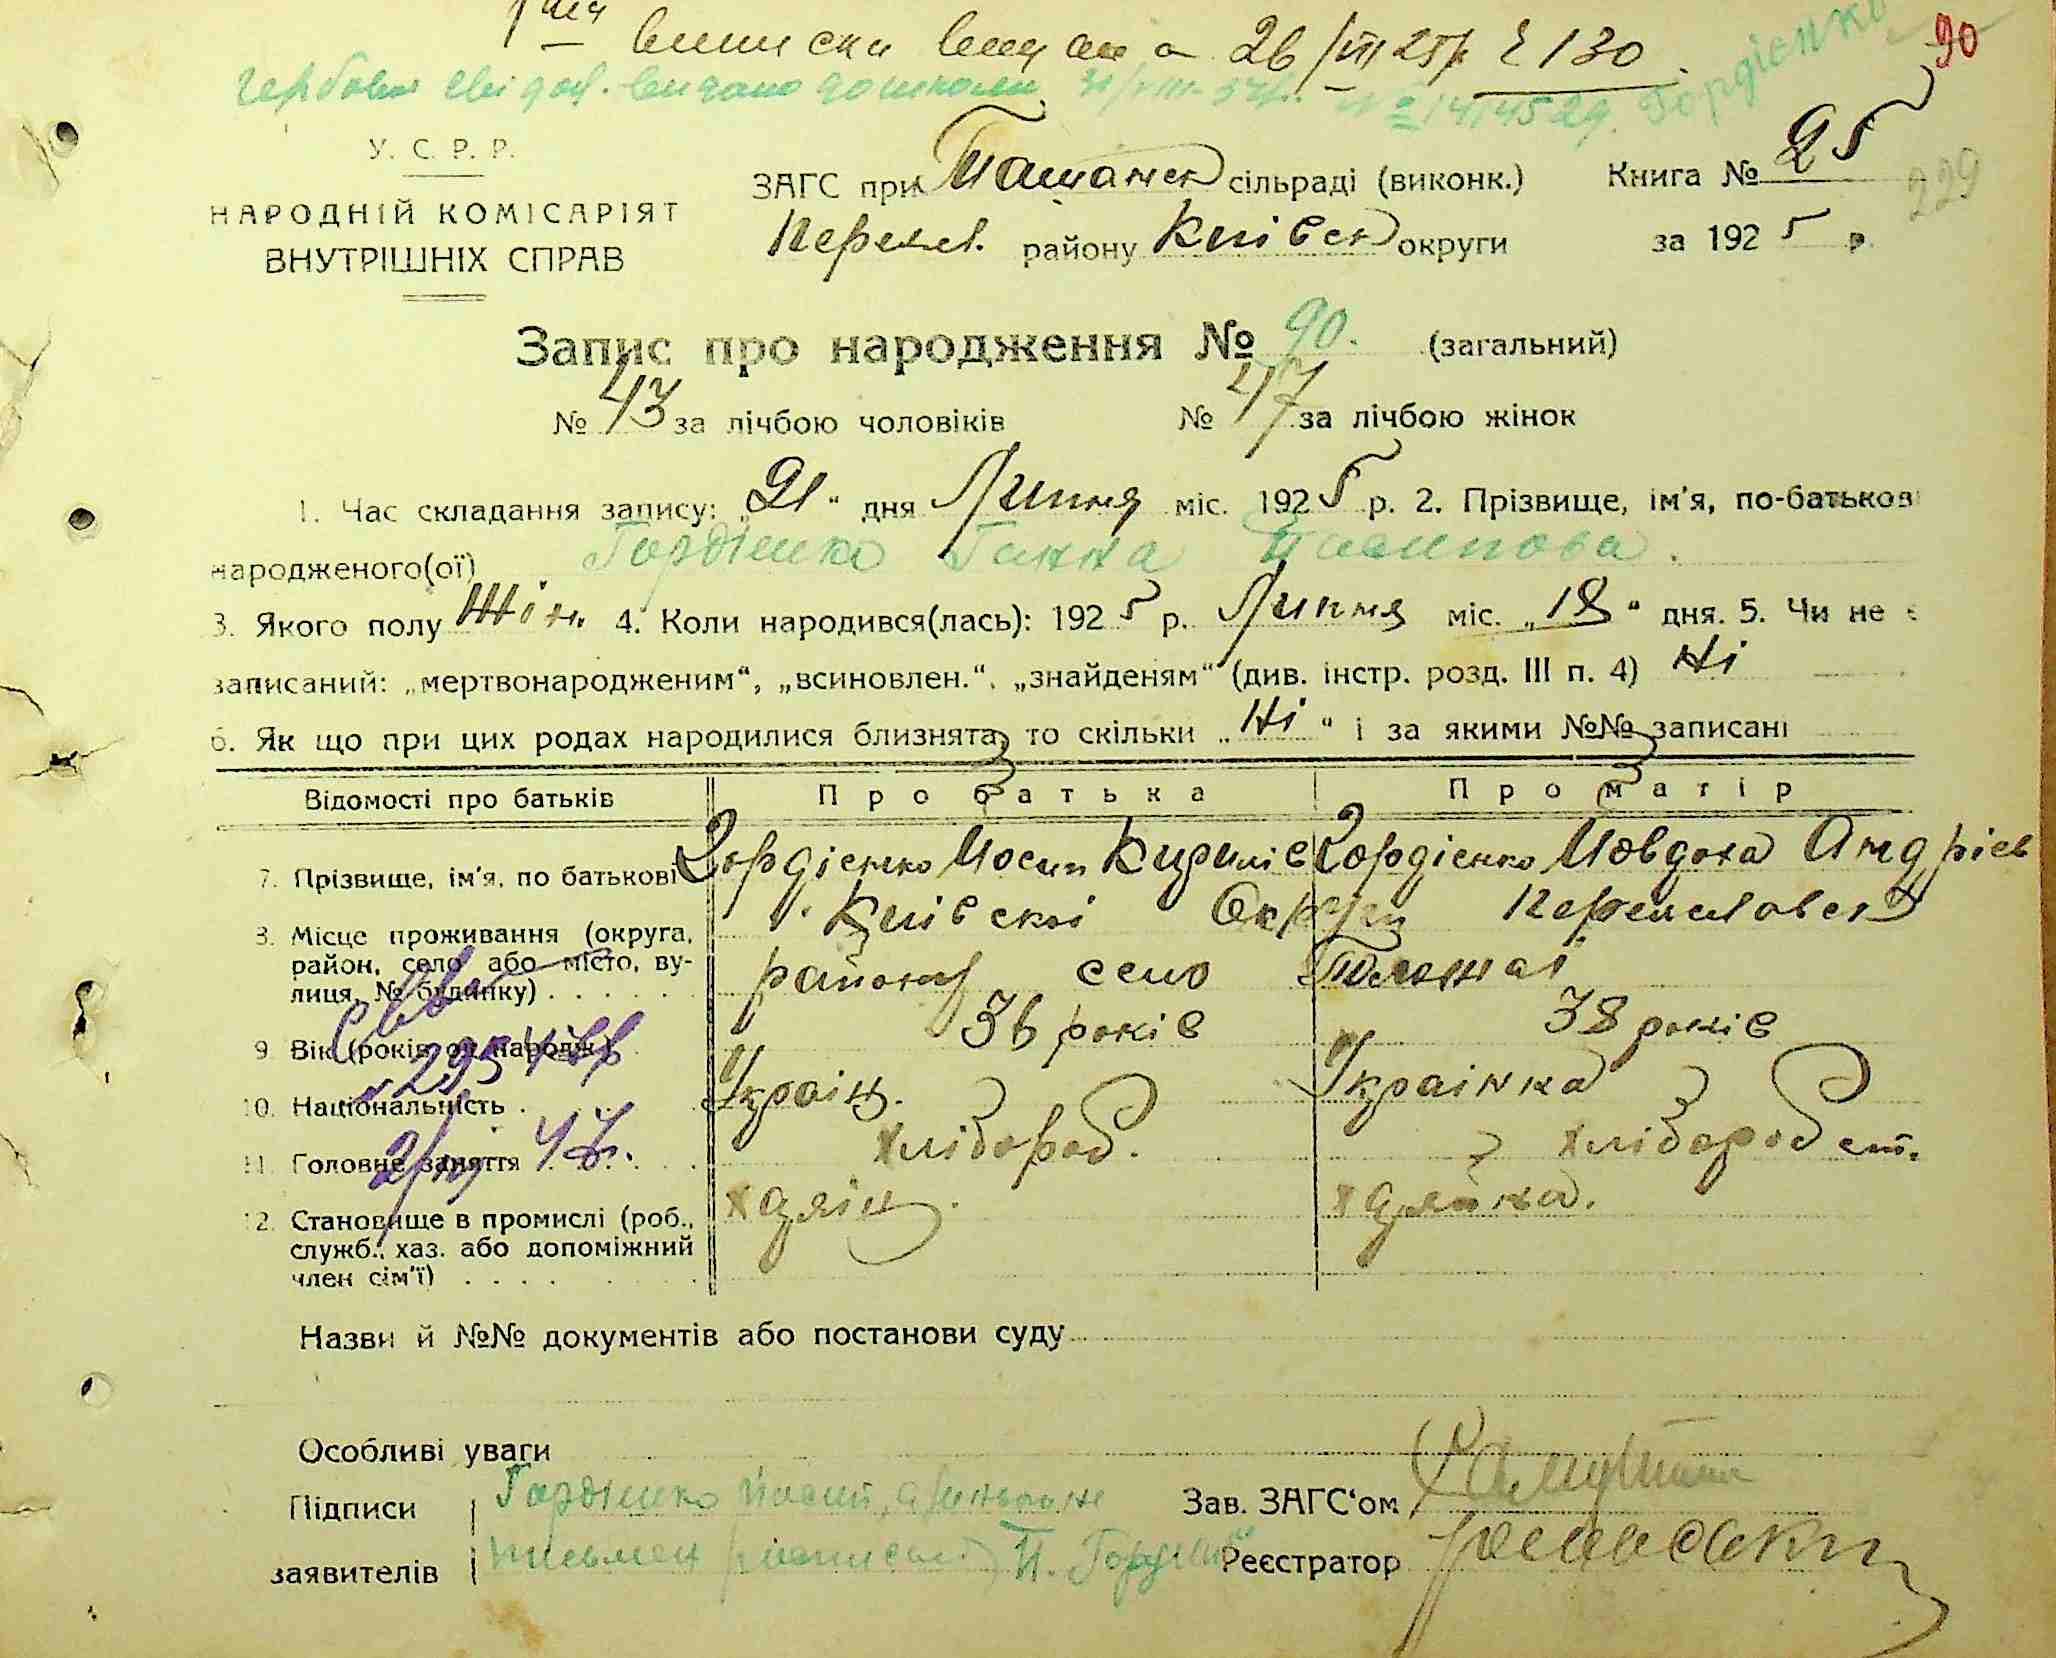 виписка видана 26/VII 25р № 130
90
Гербове свідоц. видано
№ 1414529. Гордієнко
У. С. Р. Р.
НАРОДНІЙ КОМІСАРІЯТ
ВНУТРІШНІХ СПРАВ
ЗАГС при Ташанск сільраді (виконк.) Книга № 25
229
Переясл. району Київск округи за 1925 р.
Запис про народження № 90. (загальний)
№ 43 за лічбою чоловіків № 47 за лічбою жінок
1. Час складання запису: „21“ дня Липня міс. 1925 р. 2. Прізвище, ім'я, по-батькові
народженого(ої) Гордієнко Ганна Йосипова.
3. Якого полу Жін. 4. Коли народився(лась): 1925 р. Липня міс. „18“ дня. 5. Чи не є
записаний: „мертвонародженим“, „всиновлен.“, „знайденям“ (див. інстр. розд. III п. 4) Ні
6. Як що при цих родах народилися близнята, то скільки „Ні“ і за якими №№ записані
Відомості про батьків Про батька Про матір
7. Прізвище, ім'я, по батькові Гордієнко Иосип Кирилів Гордієнко Мовдоха Андрієв
8. Місце проживання (округа, район, село або місто, вулиця, № будинку) Київскоі Округи Переяславск
району село
9. Вік (років од народж.) 36 років 38 років
10. Національність Украін. Украінка
11. Головне заняття хлібороб. хлібороб ст.
2/IV 47р.
12. Становище в промислі (роб., служб., хаз. або допоміжний член сім'ї) хазяін. хазяйка.
Назви й №№ документів або постанови суду
Особливі уваги
Підписи Гордієнко Йосип, Зав. ЗАГС'ом
заявителів Реєстратор